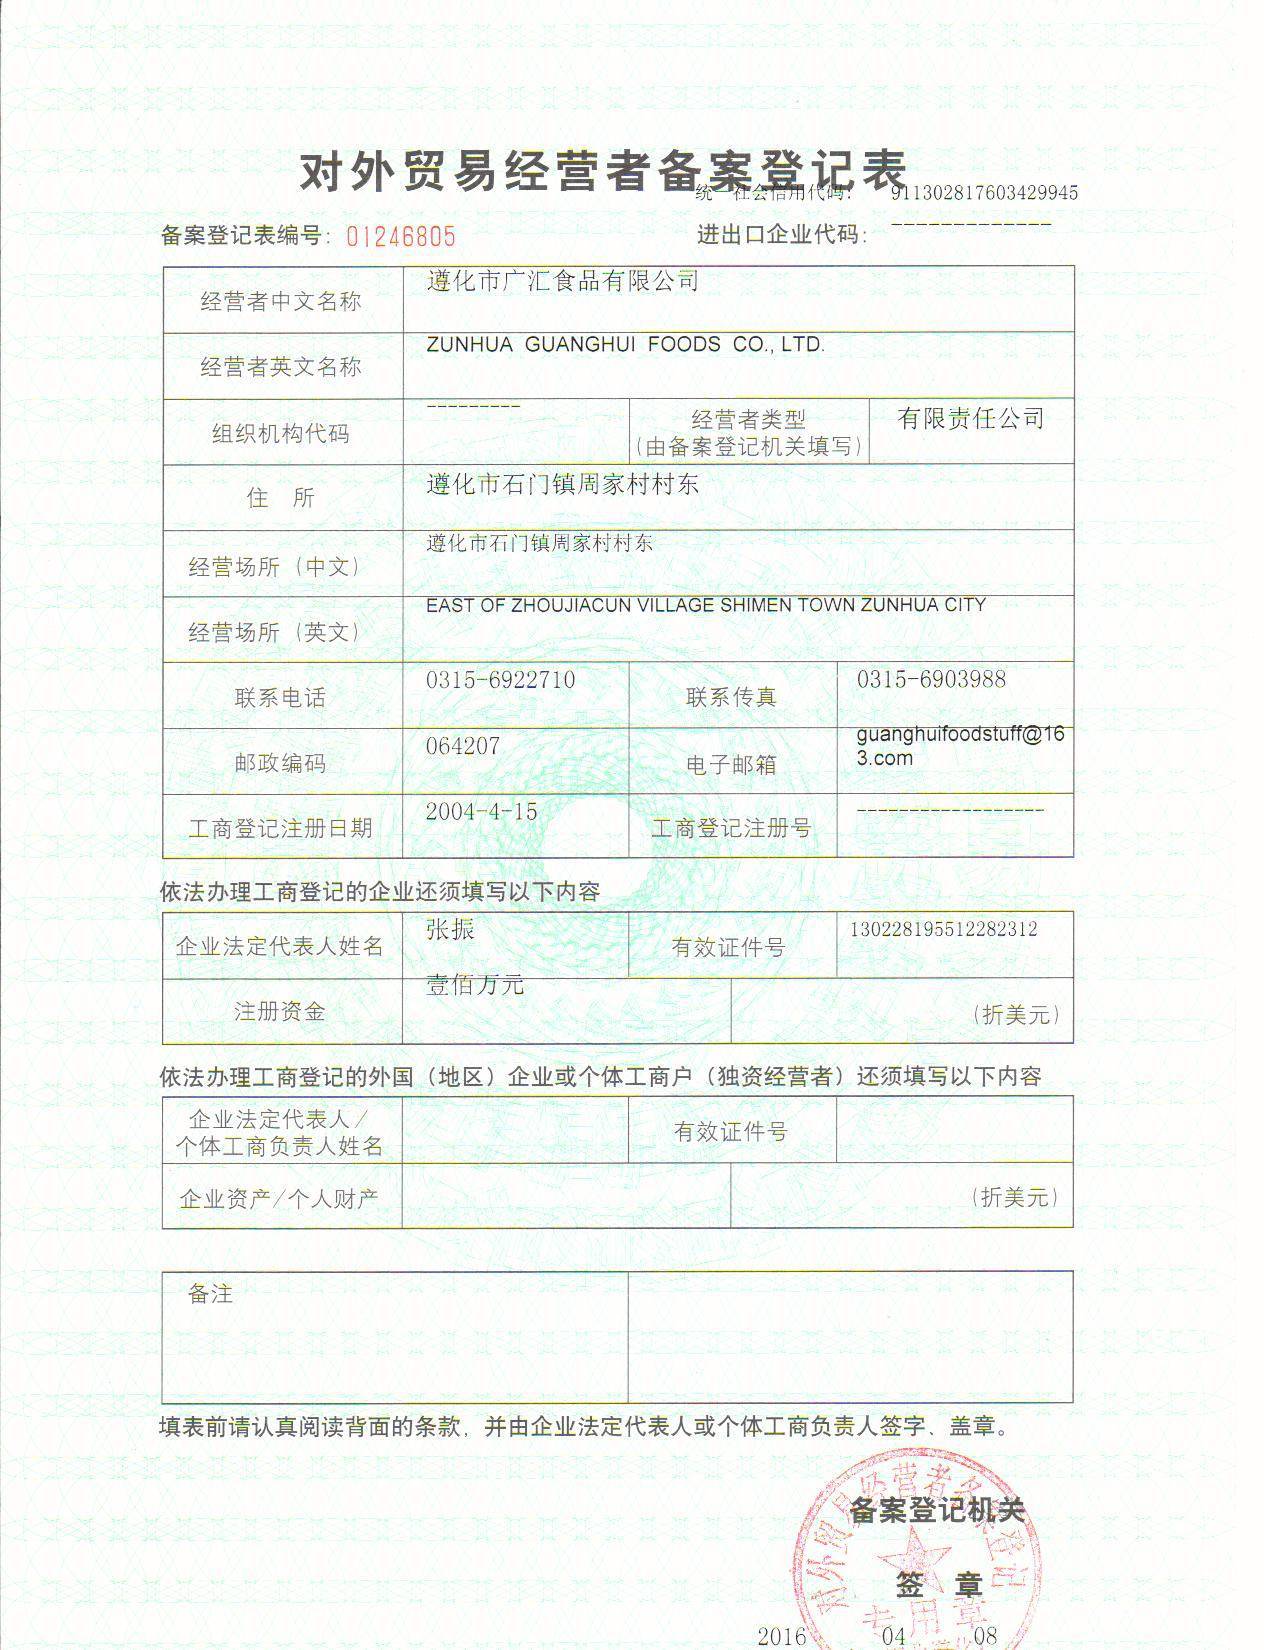 对外贸易经营者备案登记表
统一社会信用代码： 911302817603429945
备案登记表编号： 01246805 进出口企业代码： -------------
经营者中文名称 遵化市广汇食品有限公司
经营者英文名称 ZUNHUA GUANGHUI FOODS CO., LTD.
组织机构代码 --------- 经营者类型 有限责任公司
（由备案登记机关填写）
住 所 遵化市石门镇周家村村东
经营场所（中文） 遵化市石门镇周家村村东
经营场所（英文） EAST OF ZHOUJIACUN VILLAGE SHIMEN TOWN ZUNHUA CITY
联系电话 0315-6922710 联系传真 0315-6903988
邮政编码 064207 电子邮箱 guanghuifoodstuff@16
3.com
工商登记注册日期 2004-4-15 工商登记注册号 ------------------
依法办理工商登记的企业还须填写以下内容
企业法定代表人姓名 张振 有效证件号 130228195512282312
注册资金 壹佰万元 （折美元）
依法办理工商登记的外国（地区）企业或个体工商户（独资经营者）还须填写以下内容
企业法定代表人／
个体工商负责人姓名 有效证件号
企业资产/个人财产 （折美元）
备注
填表前请认真阅读背面的条款，并由企业法定代表人或个体工商负责人签字、盖章。
对外贸易经营者备案登记
备案登记机关
签 章
专用章
2016 04 08